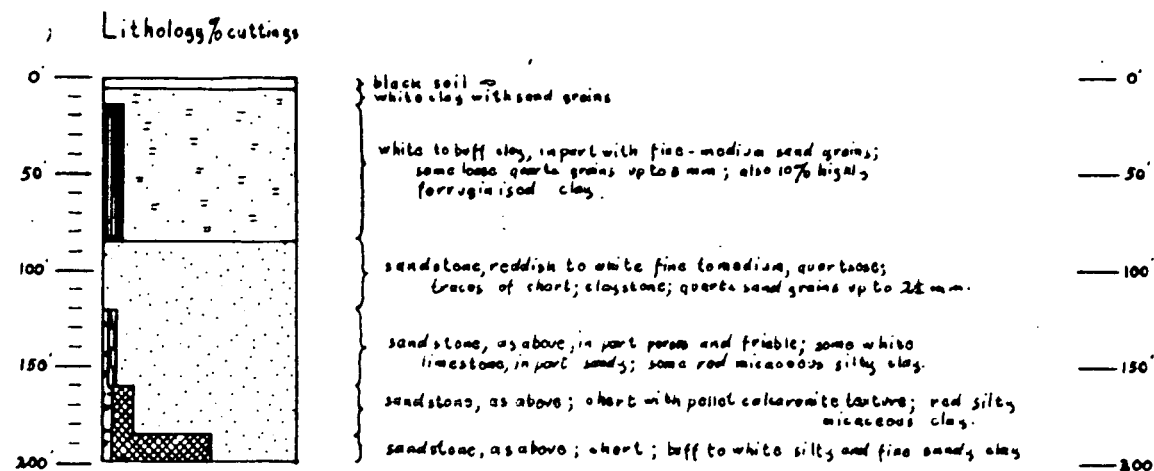 Lithology % cuttings
0'
50'
100'
150'
200'
black soil
white clay with sand grains
white to buff clay, in part with fine-medium sand grains;
some loose quartz grains up to 8 mm; also 10% highly
ferruginised clay.
sandstone, reddish to white fine to medium, quartzose;
traces of chert; claystone; quartz sand grains up to 2½ mm.
sandstone, as above, in part porous and friable; some white
limestone, in part sandy; some red micaceous silty clay.
sandstone, as above; chert with pellet calcarenite texture; red silty
micaceous clay.
sandstone, as above; chert; buff to white silty and fine sandy clay
0'
50'
100'
150'
200